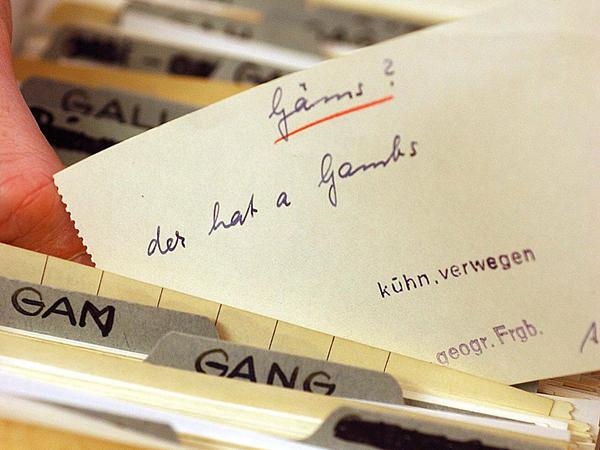 GALL
Gäms?
der hat a Gambs
kühn, verwegen
geogr. Frgb.
GAM
GANG